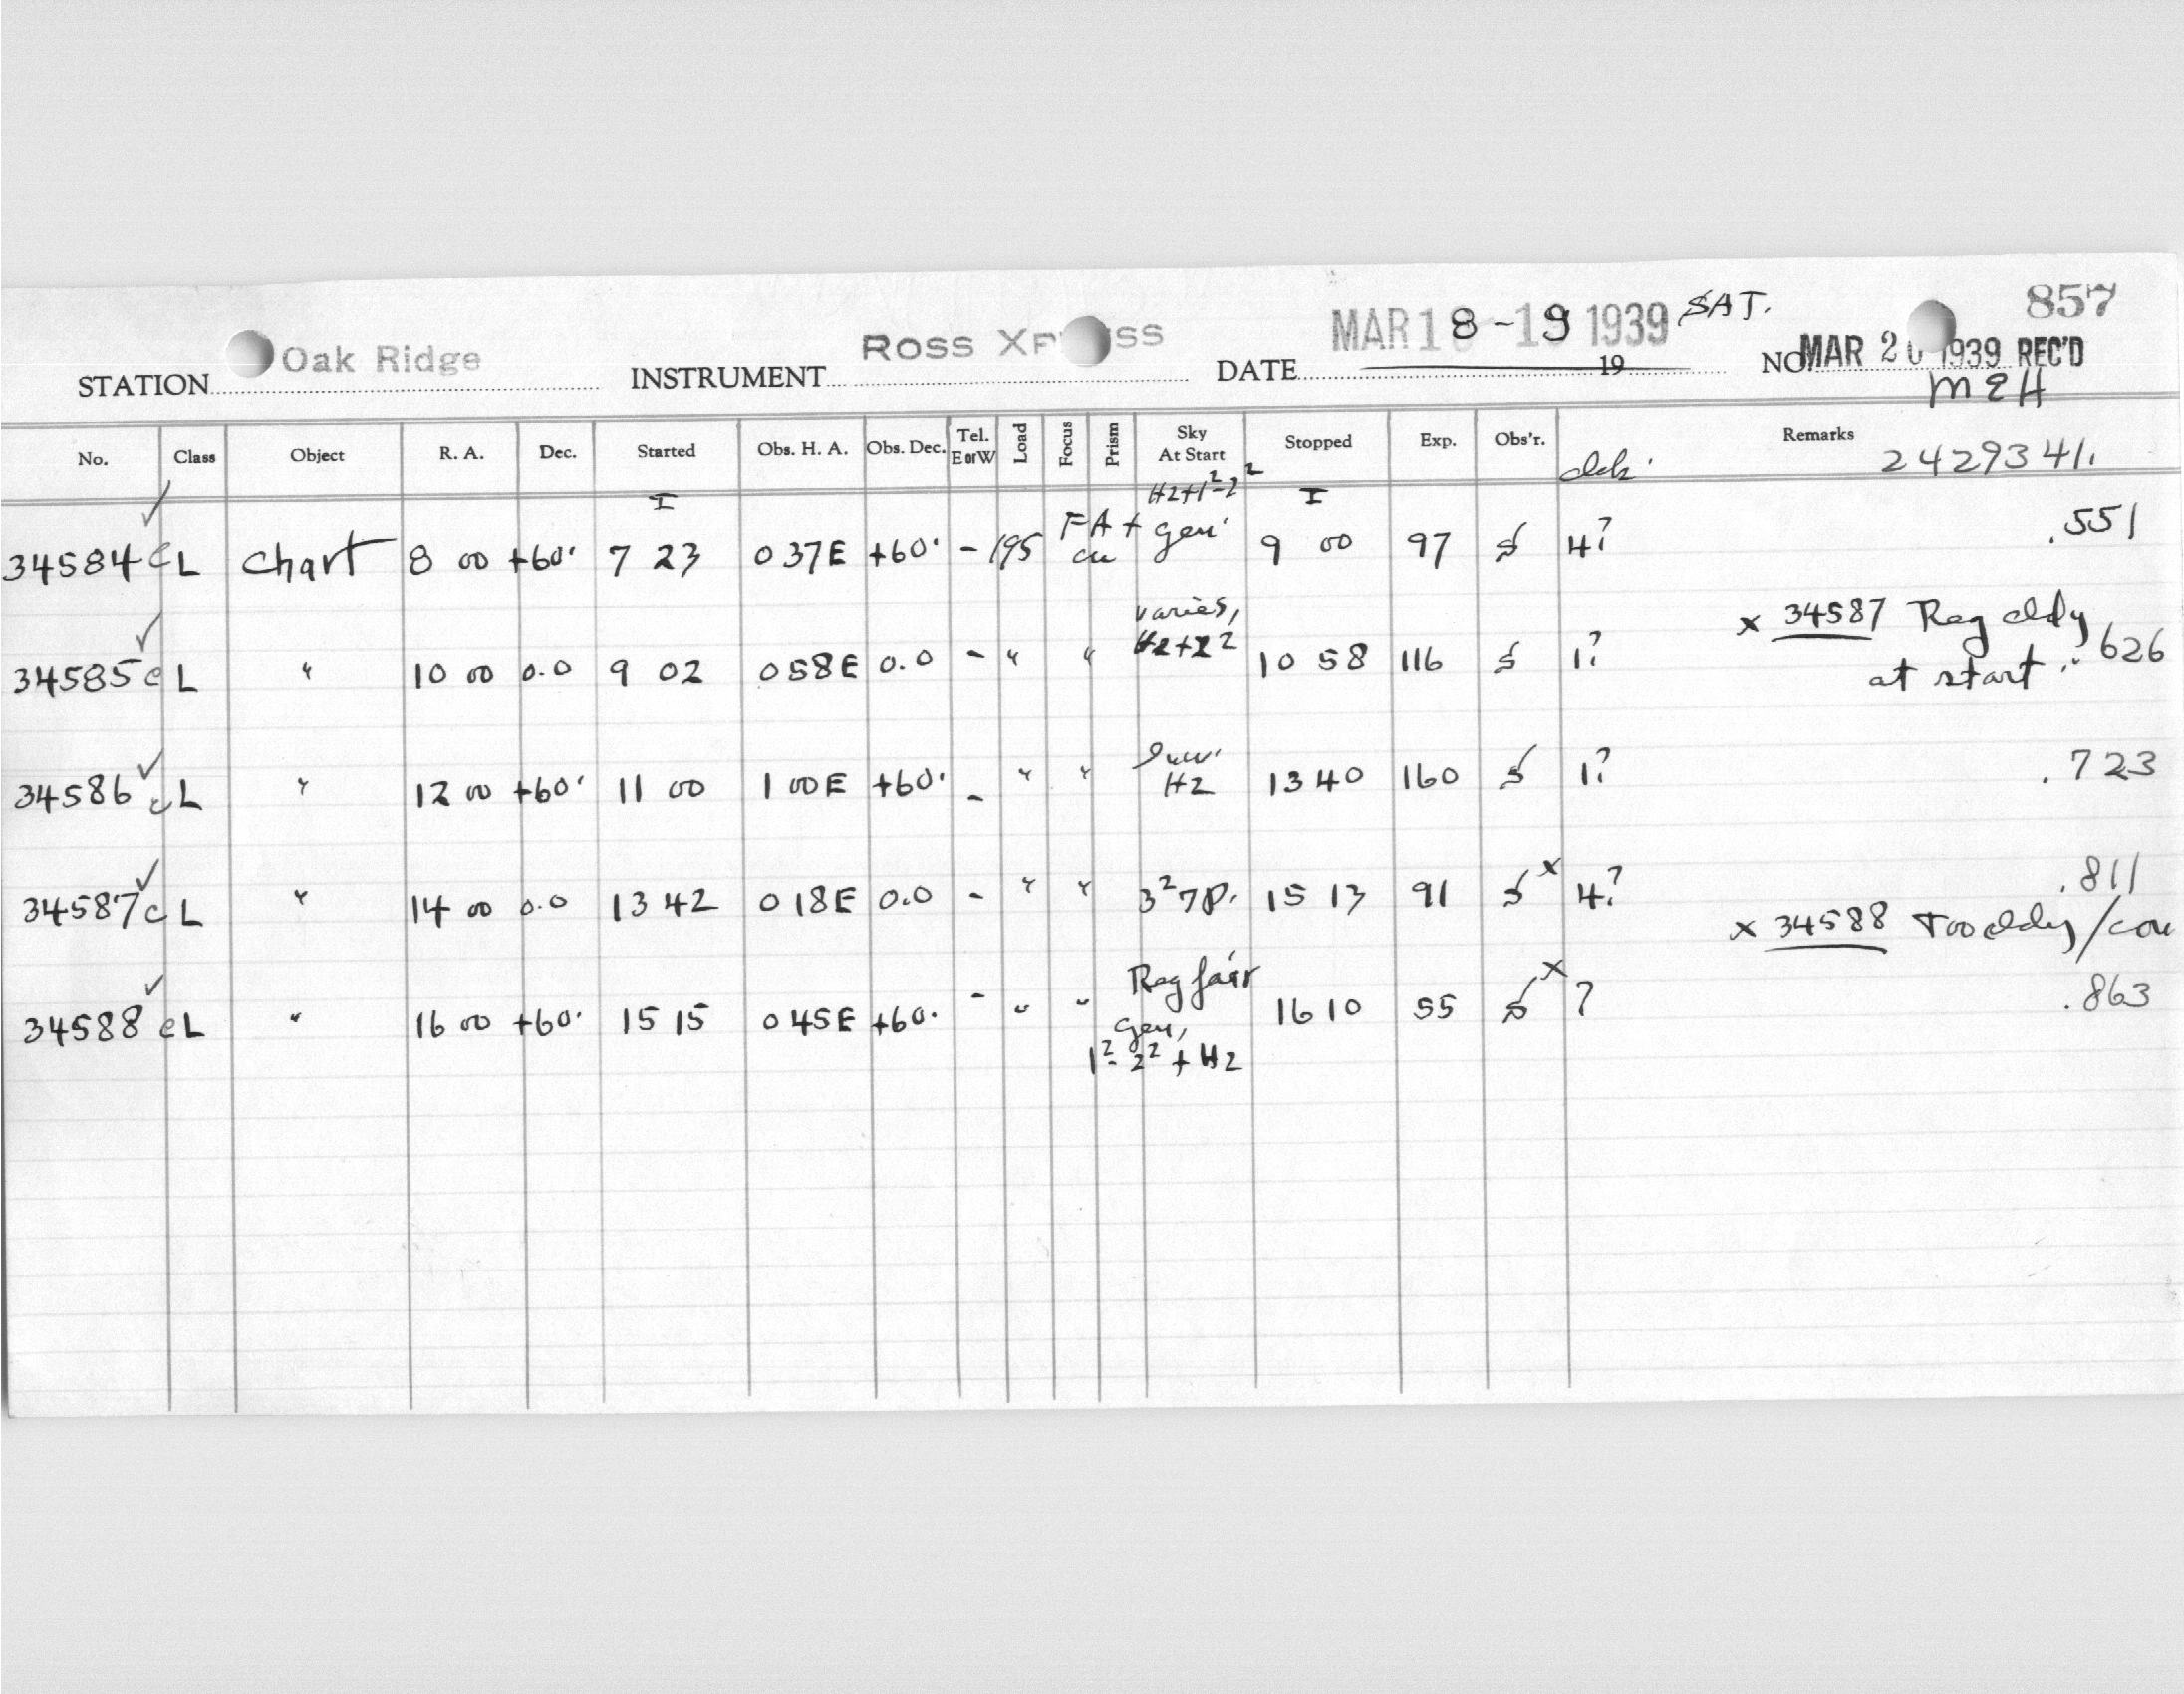 857
STATION Oak Ridge INSTRUMENT ROSS DATE MAR 18-19 1939 SAT. 19 NO. MAR 20 1939 REC'D
No. Class Object R. A. Dec. Started Obs. H. A. Obs. Dec. Tel. E or W Load Focus Prism Sky At Start Stopped Exp. Obs'r. Remarks
2429341.
34584 c L Chart 8 00 +60. 7 23 0 37E +60. - 195 FA + 9 00 97 4? .551
34585 c L " 10 00 0.0 9 02 0 58E 0.0 - " " varies, 10 58 116 1? x 34587 Reg cldy at start .626
34586 c L " 12 00 +60. 11 00 1 00E +60. - " " Hz 13 40 160 1? .723
34587 c L " 14 00 0.0 13 42 0 18E 0.0 - " " 15 13 91 x 4? .811
x 34588 Too cldy/con
34588 c L " 16 00 +60. 15 15 0 45E +60. - " " Reg fair 16 10 55 x ? .863
gen,
1²- 2² + Hz